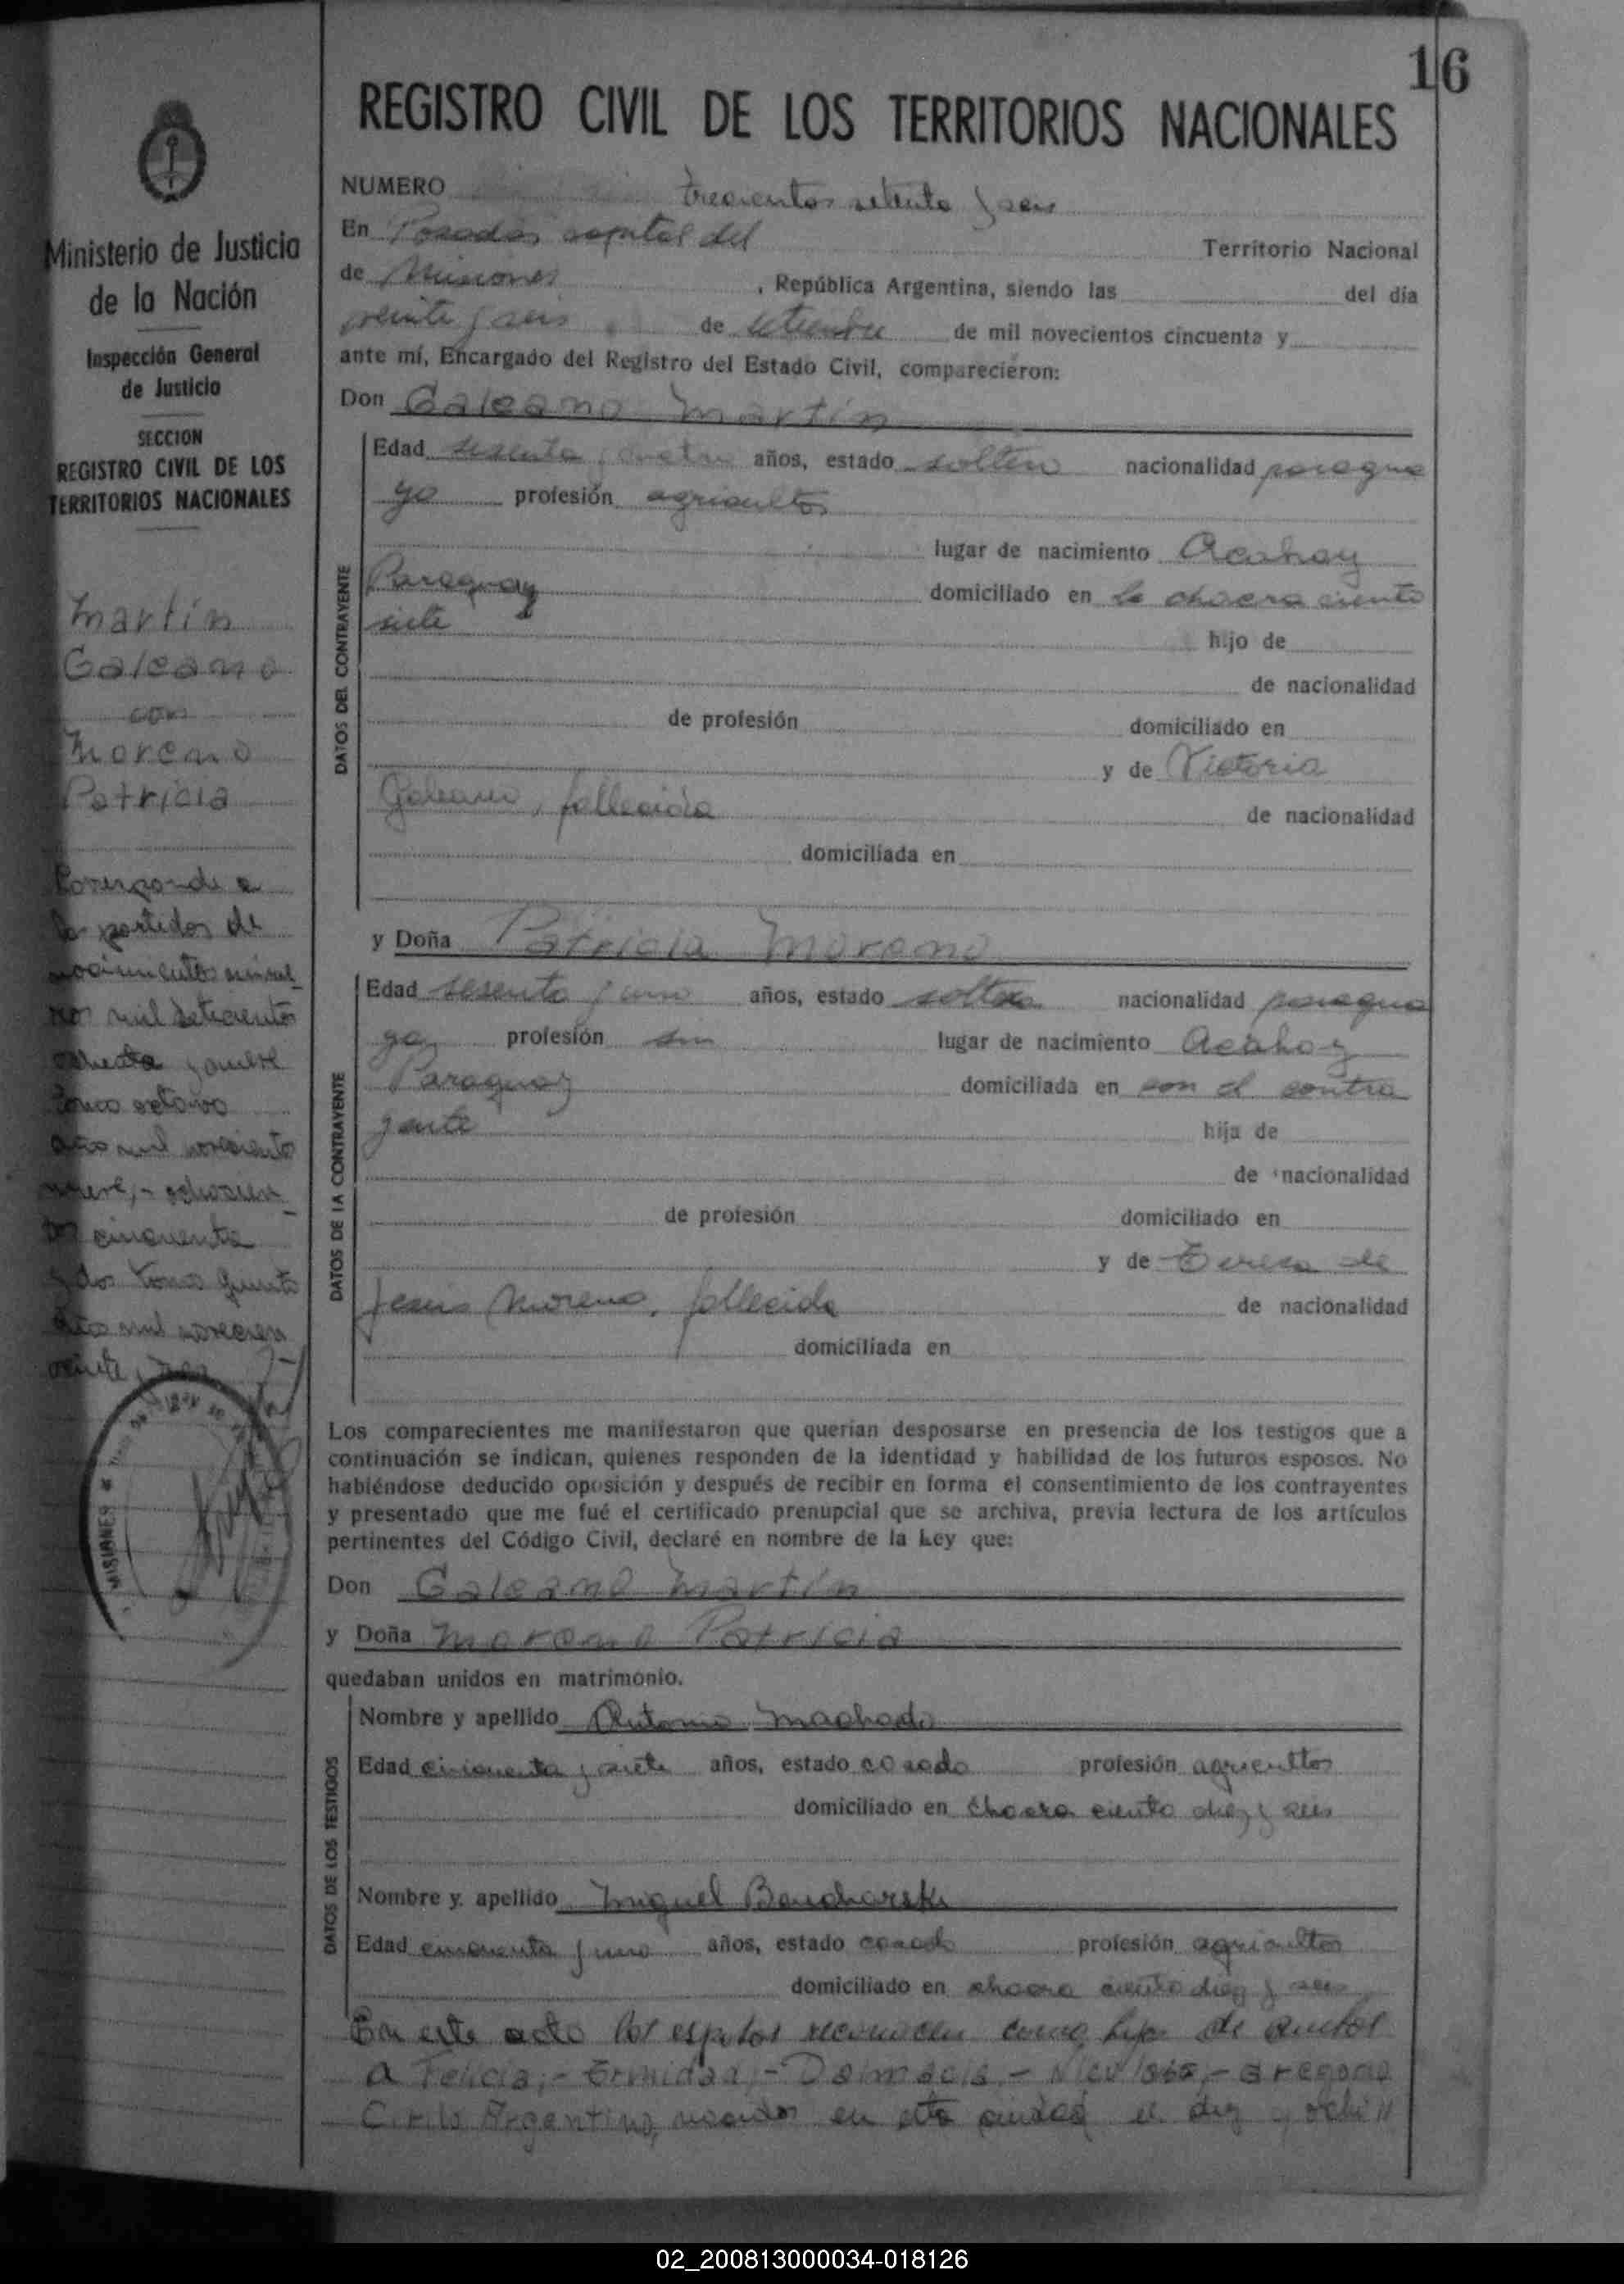 16
REGISTRO CIVIL DE LOS TERRITORIOS NACIONALES
NUMERO trecientos setenta y seis
En Posadas capital del Territorio Nacional
de Misiones, República Argentina, siendo las del día
veinte y seis de setiembre de mil novecientos cincuenta y
ante mí, Encargado del Registro del Estado Civil, comparecieron:
Don Galeano Martín
DATOS DEL CONTRAYENTE
Edad sesenta y cuatro años, estado soltero nacionalidad paragua
yo profesión agricultor
lugar de nacimiento Acahay
Paraguay domiciliado en la chacra ciento
siete hijo de
de nacionalidad
de profesión domiciliado en
y de Victoria
Galeano, fallecida de nacionalidad
domiciliada en
y Doña Patricia Moreno
DATOS DE LA CONTRAYENTE
Edad sesenta y uno años, estado soltera nacionalidad paragua
ya profesión sin lugar de nacimiento Acahay
Paraguay domiciliada en con el contra
yente hija de
de nacionalidad
de profesión domiciliado en
y de Teresa de
Jesús Moreno, fallecida de nacionalidad
domiciliada en
Los comparecientes me manifestaron que querían desposarse en presencia de los testigos que a
continuación se indican, quienes responden de la identidad y habilidad de los futuros esposos. No
habiéndose deducido oposición y después de recibir en forma el consentimiento de los contrayentes
y presentado que me fué el certificado prenupcial que se archiva, previa lectura de los artículos
pertinentes del Código Civil, declaré en nombre de la Ley que:
Don Galeano Martín
y Doña Moreno Patricia
quedaban unidos en matrimonio.
DATOS DE LOS TESTIGOS
Nombre y apellido Antonio Machado
Edad cincuenta y siete años, estado casado profesión agricultor
domiciliado en chacra ciento diez y seis
Nombre y apellido Miguel Bancharski
Edad cincuenta y uno años, estado casado profesión agricultor
domiciliado en chacra ciento diez y seis
En este acto los esposos reconocen como hijos de ambos
a Felicia,- Ermidaa,- Dalmacia,- Nicolasa,- Gregorio
Cirilo Argentino, nacidos en esta ciudad el diez y ocho
Ministerio de Justicia
de la Nación
Inspección General
de Justicia
SECCION
REGISTRO CIVIL DE LOS
TERRITORIOS NACIONALES
Martín
Galeano
con
Moreno
Patricia
Corresponde a
las partidas de
nacimientos
mil setecientos
ochenta y nueve
tomo octavo
año mil novecientos
nueve,- ochocien
tos cincuenta
y dos tomo quinto
año mil novecien
veinte y
MISIONES
02_200813000034-018126